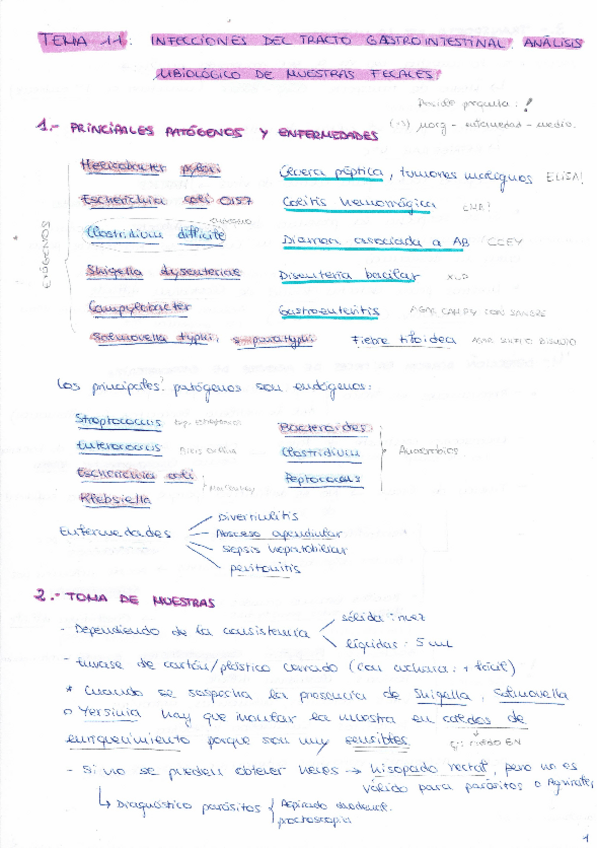 TEMA 11: INFECCIONES DEL TRACTO GASTROINTESTINAL. ANÁLISIS
µBIOLÓGICO DE MUESTRAS FECALES.
pregunta: !
(→) µorg - enfermedad - medio.
1.- PRINCIPALES PATÓGENOS Y ENFERMEDADES
Helicobacter pylori Úlcera péptica, tumores malignos ELISA!
Escherichia coli O157 Colitis hemorrágica
Clostridium difficile Diarrea asociada a AB / CCEY
Shigella dysenteriae Disentería bacilar XLD
Campylobacter Gastroenteritis AGAR CAMPY CON SANGRE
Salmonella typhi, s paratyphi Fiebre tifoidea AGAR SULFITO BISMUTO
* EXÓGENOS
Los principales patógenos son endógenos:
Streptococcus Bacteroides
Enterococcus Clostridium Anaerobios
Escherichia coli Peptococcus
MacConkey
Klebsiella
Enfermedades
Diverticulitis
Absceso apendicular
Sepsis hepatobiliar
peritonitis
2.- TOMA DE MUESTRAS
- Dependiendo de la consistencia
sólida: nuez
líquidas: 5 mL
- Envase de cartón/plástico cerrado (con cuchara: + fácil)
* Cuando se sospecha la presencia de Shigella, Salmonella
o Yersinia hay que incubar la muestra en caldos de
enriquecimiento porque son muy sensibles
- Si no se pueden obtener heces → hisopado rectal, pero no es
válido para parásitos o
↳ Diagnóstico parásitos { Aspirado duodenal.
proctoscopia
1